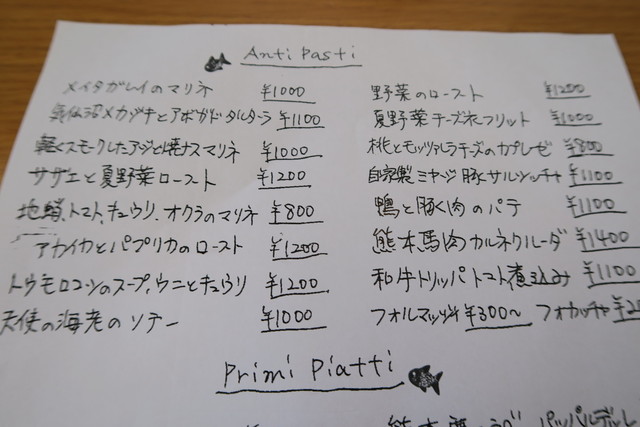 Anti Pasti
メイタガレイのマリネ ¥1000
気仙沼メカジキとアボガドタルタ―ラ ¥1100
軽くスモークしたアジと焼ナスマリネ ¥1000
サザエと夏野菜ロースト ¥1200
地蛸、トマト、キュウリ、オクラのマリネ ¥800
アカイカとパプリカのロースト ¥1200
トウモロコシのスープ、ウニとキュウリ ¥1200
天使の海老のソテー ¥1000
野菜のロースト ¥1200
夏野菜チーズフリット ¥1000
桃とモッツァレラチーズのカプレーゼ ¥800
自家製ミヤジ豚サルシッチャ ¥1100
鴨と豚肉のパテ ¥1100
熊本馬肉カルネクルーダ ¥1400
和牛トリッパトマト煮込み ¥1100
フォルマッジ ¥300～ フォカッチャ
Primi Piatti